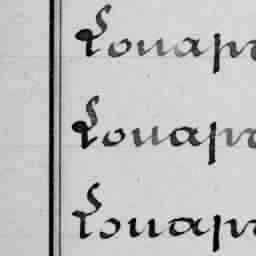 Louapr
Louapr
Louapr